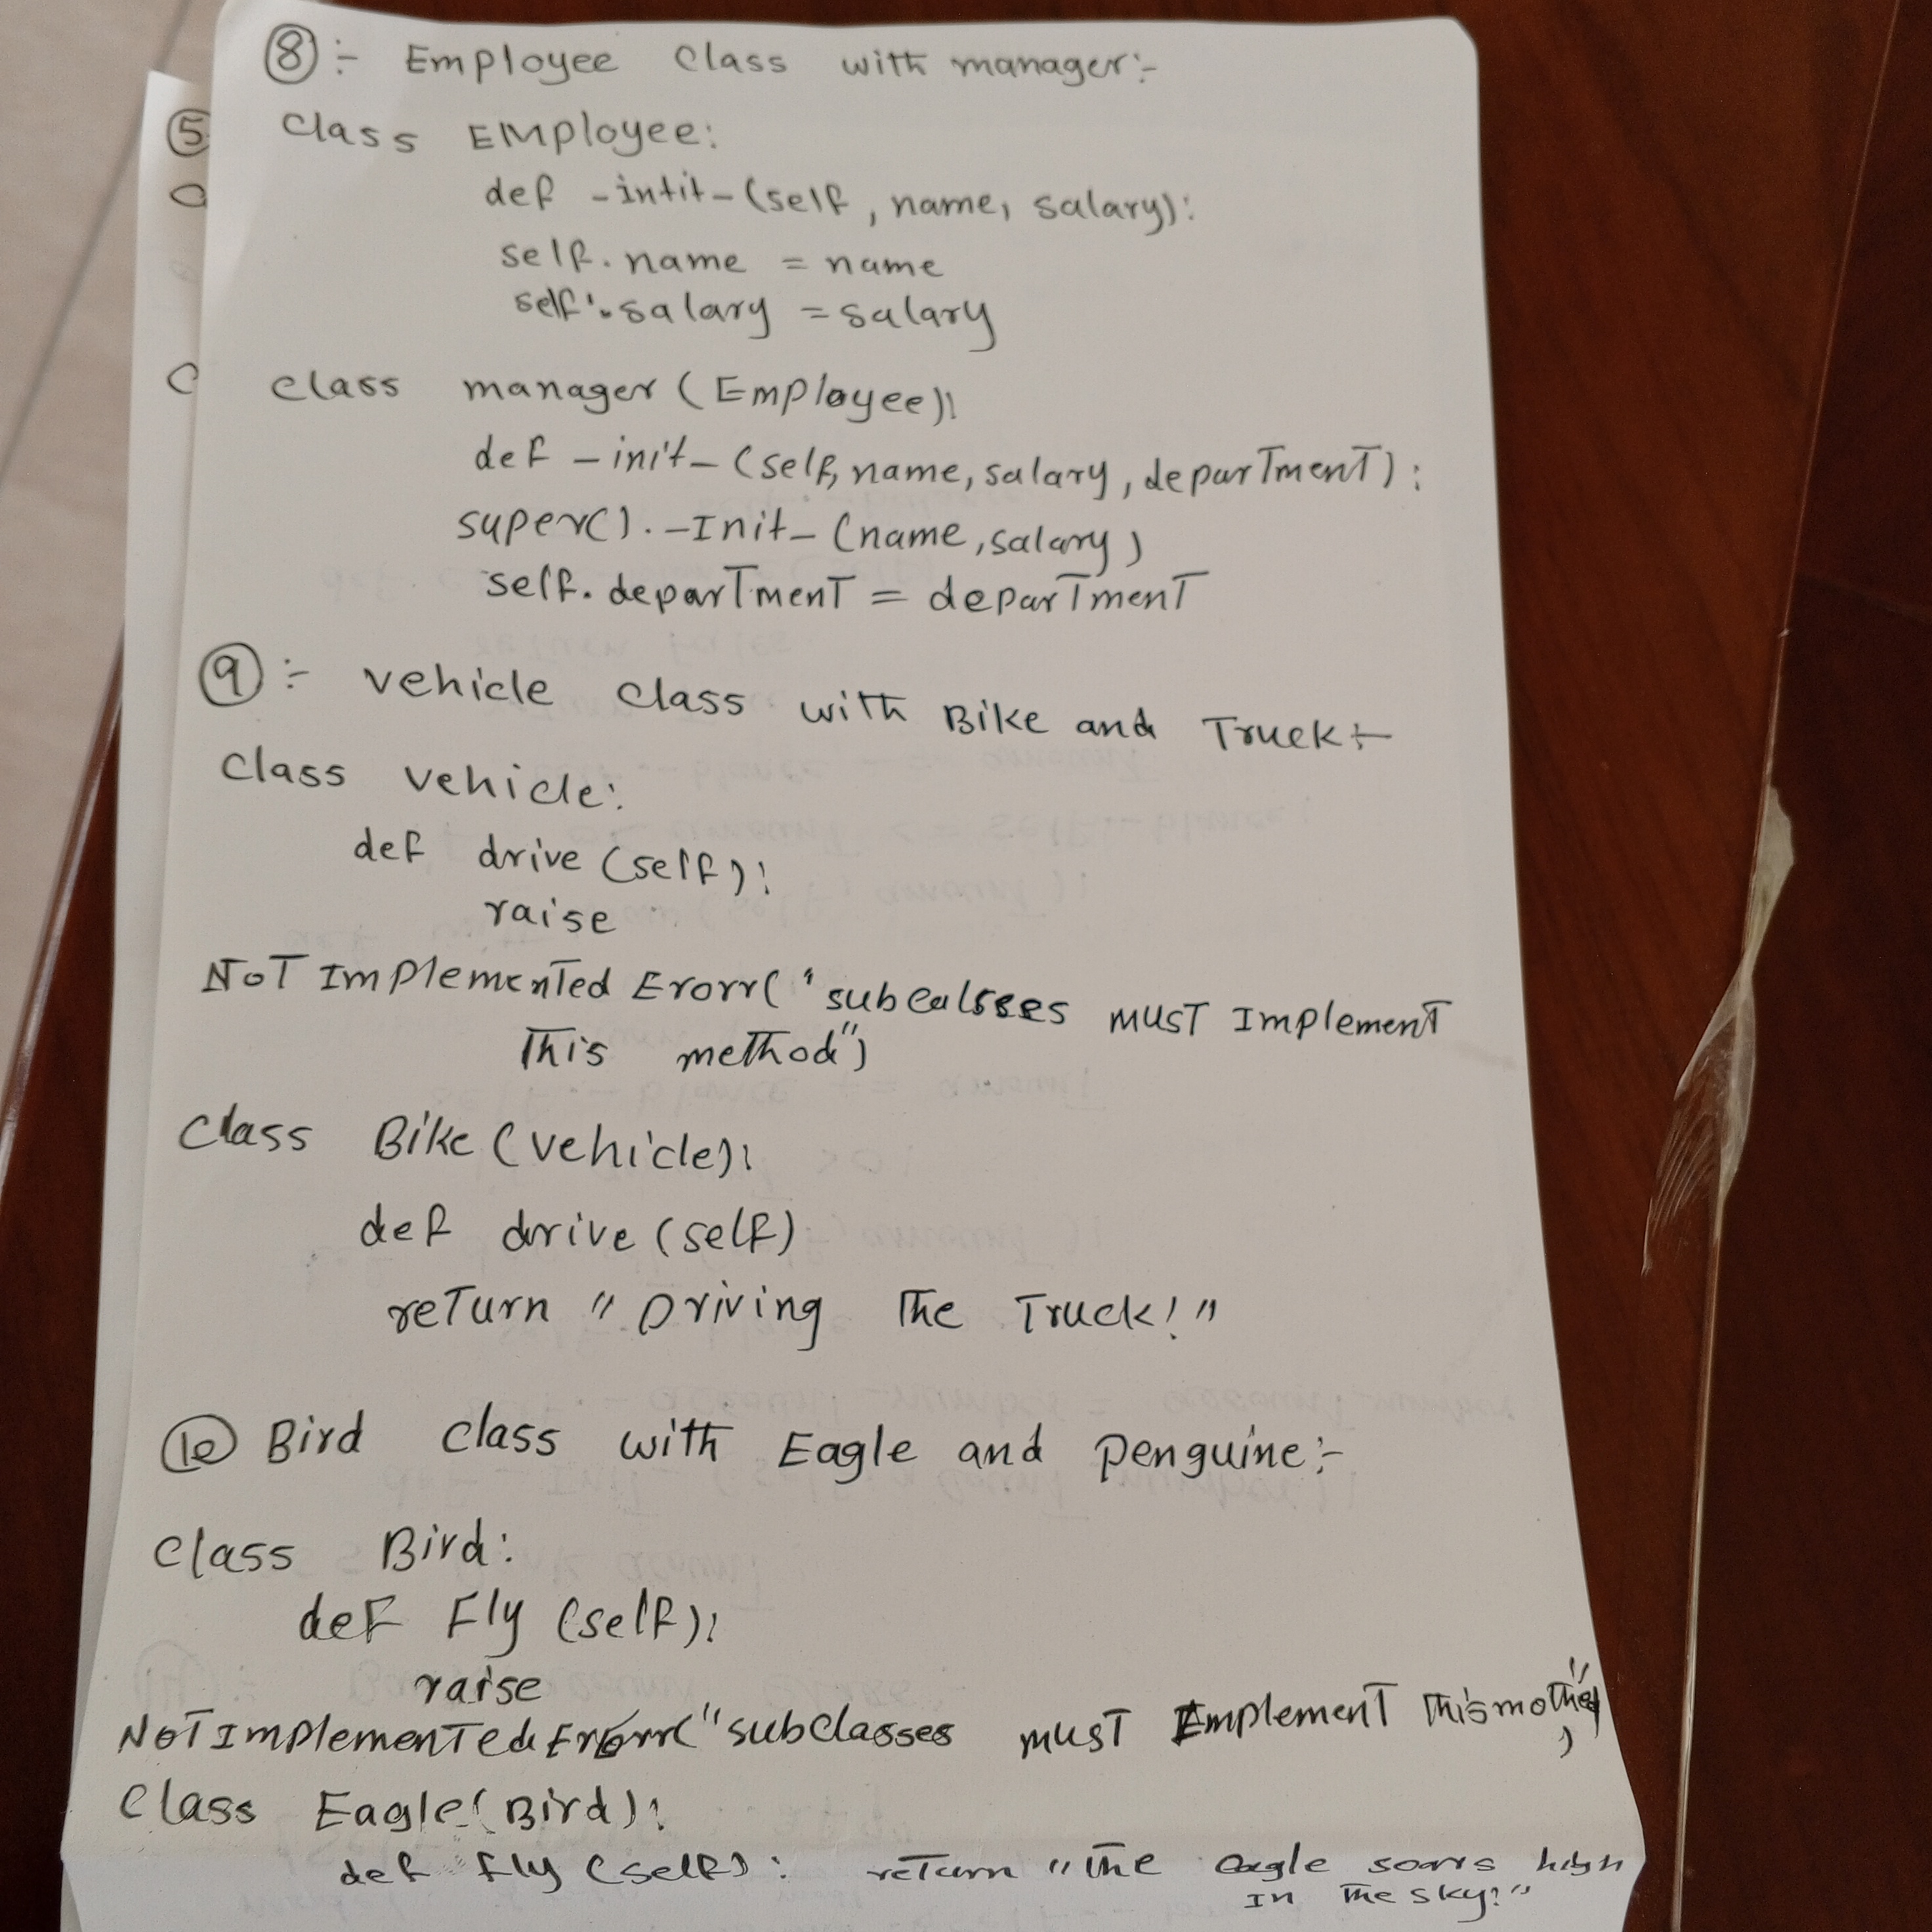 ⑧:- Employee Class with manager:-
class EMployee:
def -intit-(self, name, salary):
self.name = name
self.salary = salary
class manager (Employee):
def -init-(self, name, salary, department):
super().-Init-(name, salary)
self.department = department
⑨:- vehicle class with Bike and Truck:-
class vehicle:
def drive (self):
raise
NOT Implemented Erorr("subcalsses must Implement
This method")
class Bike (vehicle):
def drive (self)
return "Driving The Truck!"
⑩ Bird class with Eagle and penguine:-
class Bird:
def Fly (self):
raise
NOTImplementedError("subclasses must Implement This
class Eagle(Bird):
def fly (self): return "The eagle soars high
In The sky!"
⑤
C
C